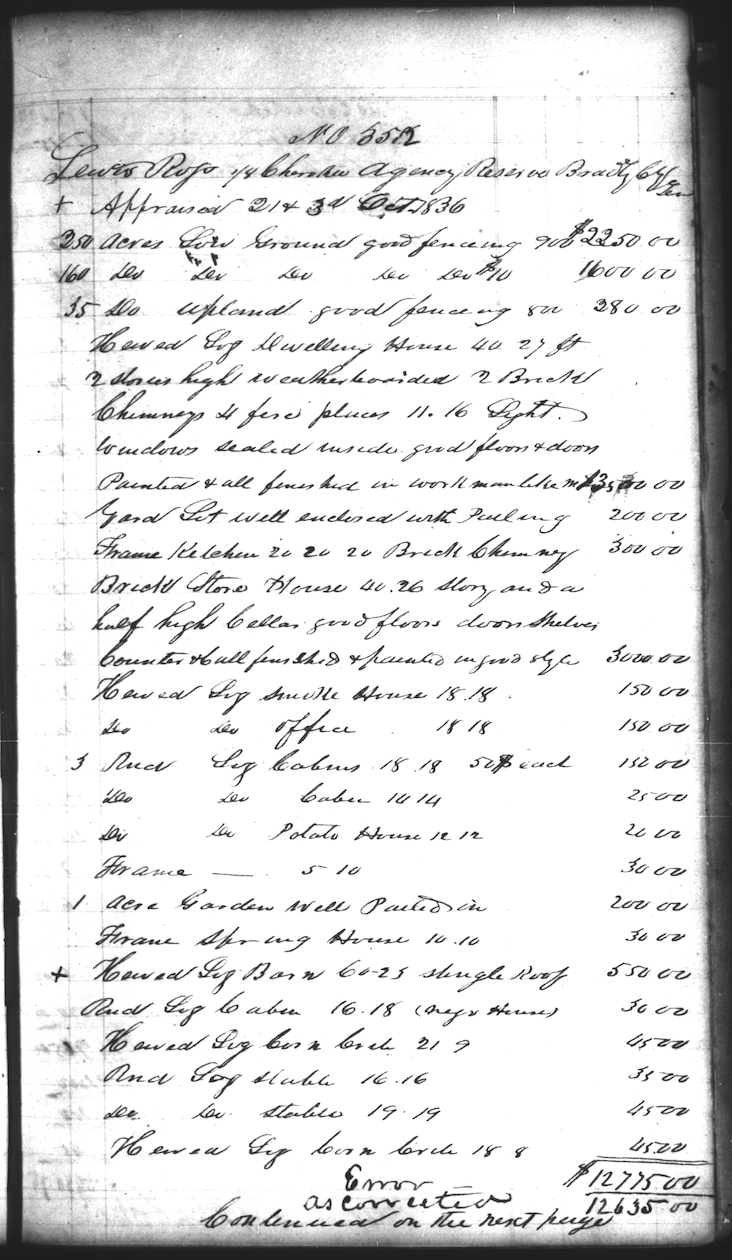 NO 35
Lewis Ross 1/4 Cherokee Agency Reserve Bradly Cty Ten
+ Appraised 2d & 3d Oct. 1836
250 Acres Low Ground good fencing 900 $2250 00
160 Do Do Do Do Do $10 1600 00
35 Do Upland good fencing 800 280 00
Hewed Log Dwelling House 40 27 ft
2 stories high weatherboarded 2 Brick
Chimneys 4 fire places 11. 16 Light
windows sealed inside good floors & doors
Painted & all finished in workmanlike 3500 00
Yard Lot well enclosed with Pailing 200 00
Frame Kitchen 20 20 20 Brick Chimney 300 00
Brick Store House 40.26 story and a
half high Cellar good floors doors shelves
Counter & all finished & painted in good style 3000.00
Hewed Log smoke House 18.18 150 00
Do Do office 18 18 150.00
3 Rnd Log Cabins 18.18 50$ each 150 00
Do Do Cabin 14 14 25 00
Do Do Potato House 12 12 20 00
Frame — 5 10 30 00
1 Acre Garden Well Pailed in 200 00
Frame Spring House 10.10 30 00
+ Hewed Log Barn 60-25 shingle Roof 550 00
Rnd Log Cabin 16.18 (negro House) 30 00
Hewed Log Corn Crib 21 9 45 00
Rnd Log stable 16.16 35 00
Do Do stable 19.19 45 00
Hewed Log Corn Crib 18 8 45 00
$12775.00
Error —
as corrected 12635.00
Continued on the next page